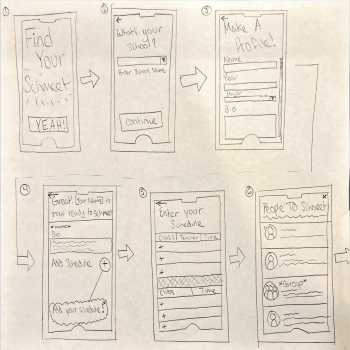 1
Find
Your
Schweet
YEAH!
2
What's your
school?
Enter School Name
Continue
3
Make A
Profile!
Name
Year
Major
Bio
4
Great! [Your Name] is
now ready to schweet
*NAME*
Bio
Add Schedule
+
Add your schedule!
5
Enter your
Schedule
Class | Teacher | Time
+
+
+
Clubs | Time
+
+
6
x
People TO Schweet
*Group*